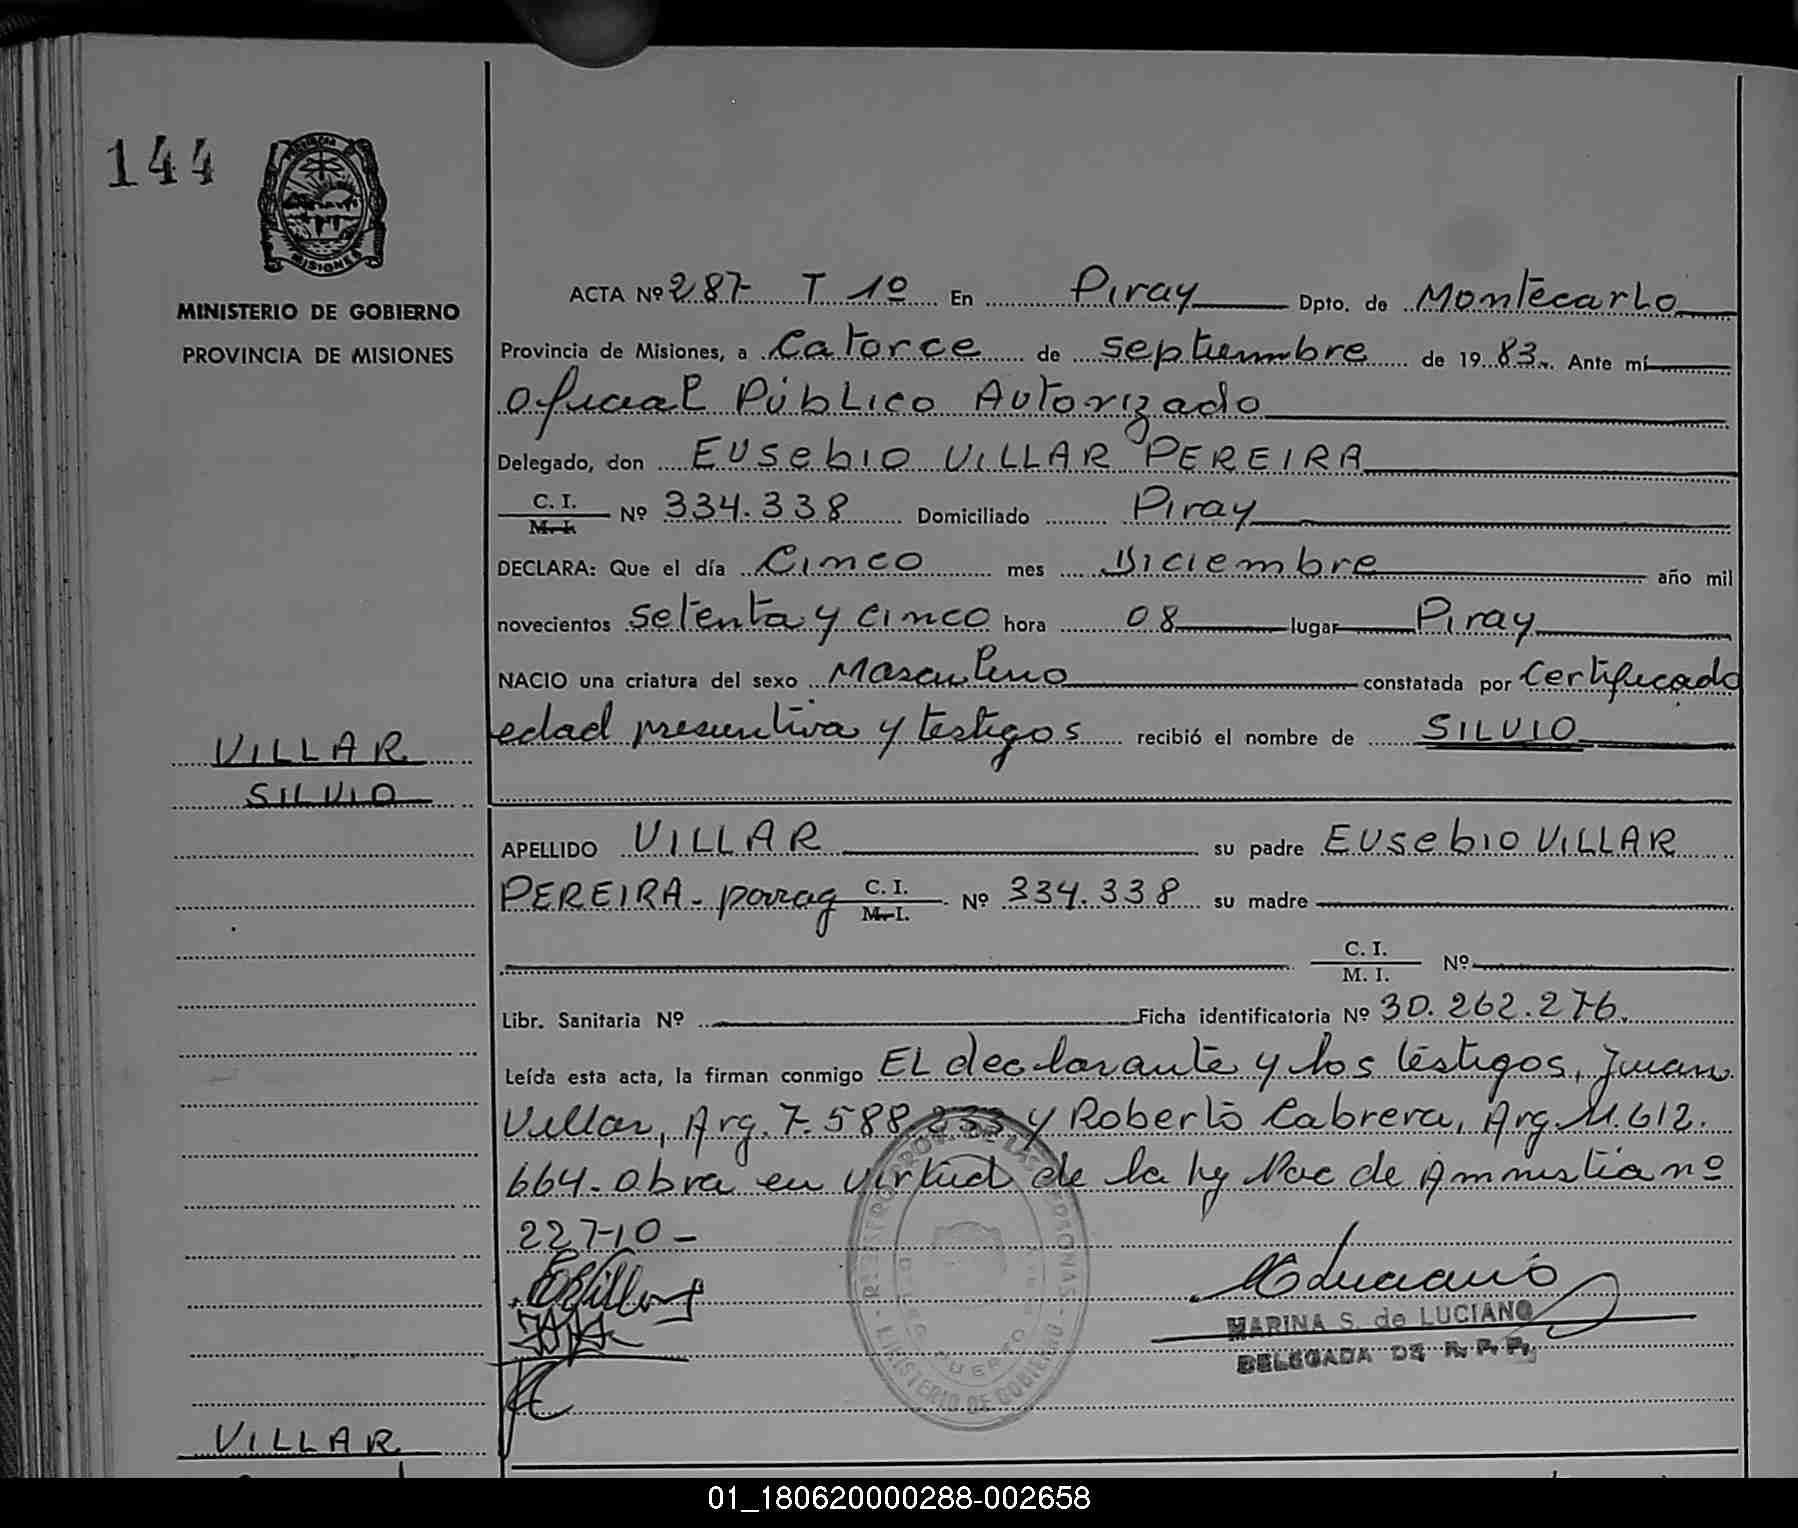 144
PROVINCIA DE
MISIONES
MINISTERIO DE GOBIERNO
PROVINCIA DE MISIONES
ACTA Nº 287 T 1º En Piray Dpto. de Montecarlo
Provincia de Misiones, a Catorce de septiembre de 1983. Ante mí
Oficial Público Autorizado
Delegado, don EUSebIO VILLAR PEREIRA
C. I.
M. I. Nº 334.338 Domiciliado Piray
DECLARA: Que el día Cinco mes Diciembre año mil
novecientos setenta y cinco hora 08 lugar Piray
NACIO una criatura del sexo Masculino constatada por Certificado
edad presuntiva y testigos recibió el nombre de SILVIO
VILLAR
SILVIO
APELLIDO VILLAR su padre EUSebIO VILLAR
PEREIRA - parag C. I.
M. I. Nº 334.338 su madre
C. I.
M. I. Nº
Libr. Sanitaria Nº Ficha identificatoria Nº 30.262.276.
Leída esta acta, la firman conmigo EL declarante y los testigos, Juan
Villar, Arg. 7.588.233 y Roberto Cabrera, Arg. 11.612.
664 - obra en virtud de la ley Nac de Amnistia nº
22710 -
REGISTRO PROV. DE LAS PERSONAS - MINISTERIO DE GOBIERNO
PUERTO
MARINA S. de LUCIANO
DELEGADA DE R. P. P.
VILLAR
01_180620000288-002658